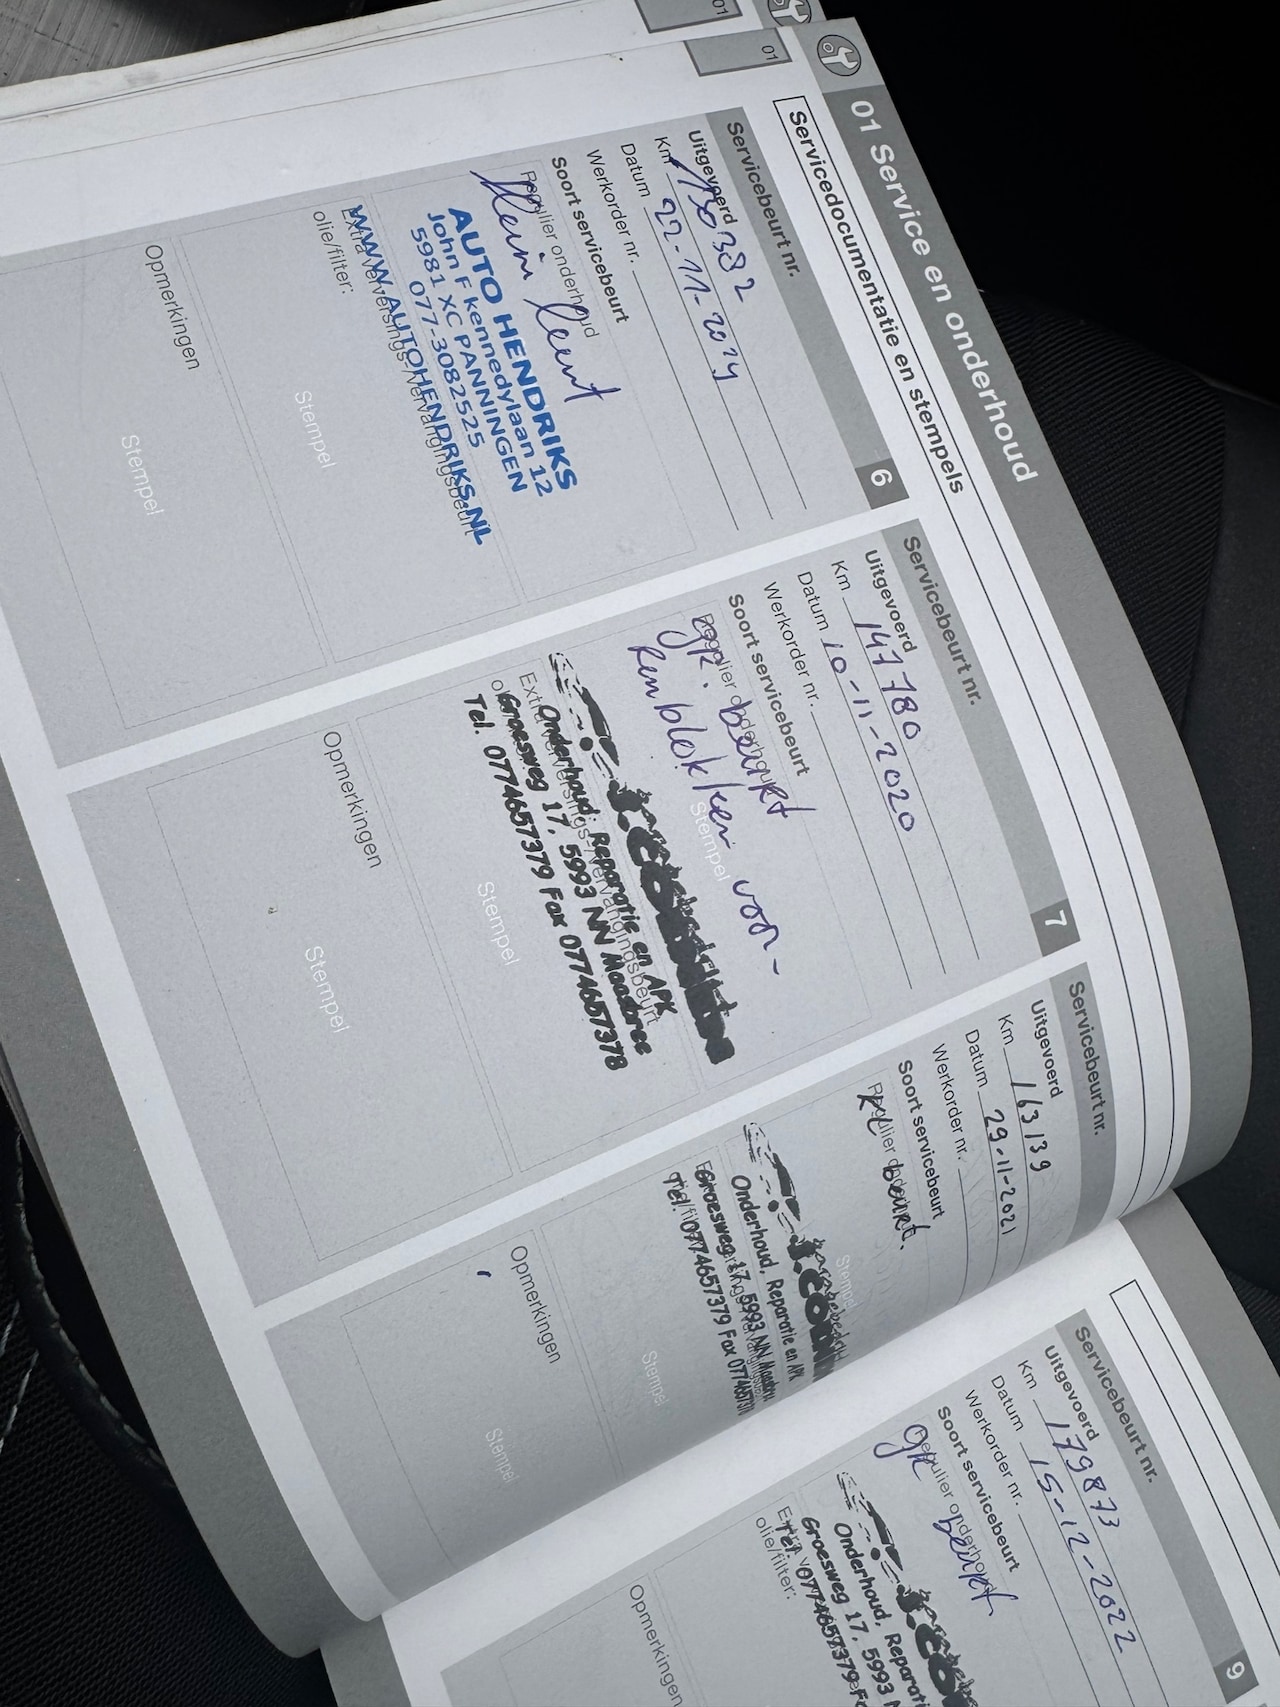 01
01
01 Service en onderhoud
Servicedocumentatie en stempels
Servicebeurt nr. 6
Uitgevoerd
Km 130382
Datum 22-11-2019
Werkorder nr.
Soort servicebeurt
Regulier onderhoud
Kleine beurt
AUTO HENDRIKS
John F kennedylaan 12
5981 XC PANNINGEN
077-3082525
WWW.AUTOHENDRIKS.NL
Extra verversings-/vervangingsbeurt
olie/filter:
Stempel
Opmerkingen
Stempel
Servicebeurt nr. 7
Uitgevoerd
Km 147780
Datum 10-11-2020
Werkorder nr.
Soort servicebeurt
Regulier onderhoud
gr. beurt
Remblokken voor
Stempel
Onderhoud, Reparatie en APK
Groesweg 17, 5993 NN Maasbree
Tel. 0774657379 Fax 0774657378
Extra verversings-/vervangingsbeurt
Stempel
Opmerkingen
Stempel
Servicebeurt nr.
Uitgevoerd
Km 163139
Datum 29-11-2021
Werkorder nr.
Soort servicebeurt
Regulier onderhoud
kl beurt.
Stempel
Onderhoud, Reparatie en APK
Groesweg 17, 5993 NN Maasbree
Tel. 0774657379 Fax
Stempel
Opmerkingen
Stempel
Servicebeurt nr. 9
Uitgevoerd
Km 179873
Datum 15-12-2022
Werkorder nr.
Soort servicebeurt
Regulier onderhoud
gr beurt
Onderhoud, Reparati
Groesweg 17, 5993 N
Tel. 0774657379 Fa
olie/filter:
Opmerkingen